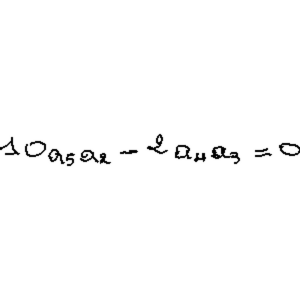 10a₅a₂ - 2a₄a₃ = 0